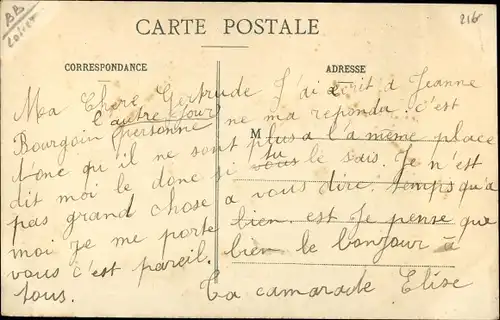 BB
216
CARTE POSTALE
CORRESPONDANCE
ADRESSE
Ma Chere Gertrude J'ai ecrit a Jeanne
l'autre jour
Bourgoin personne ne ma repondu. c'est
M
d'onc qu'il ne sont plus a la même place
tu
dit moi le donc si vous le sais. Je n'est
pas grand chose a vous dire. temps qu'a
moi je me porte bien. est Je pense que
vous c'est pareil. bien le bonjour a
tous.
Ta camarade Elise